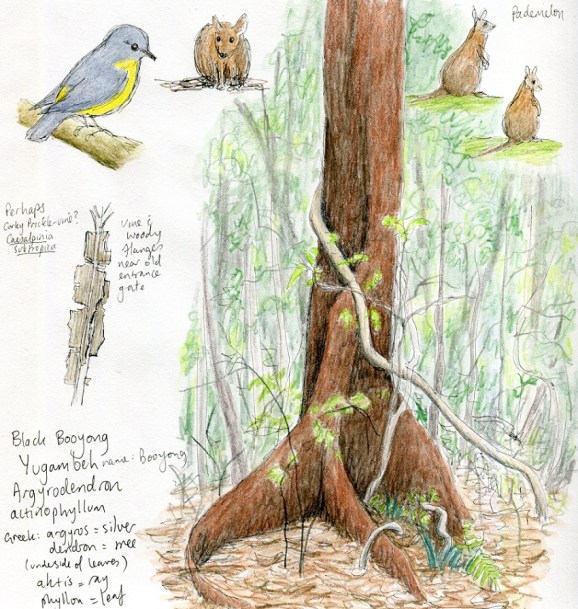 Pademelon
Perhaps
Corky Prickle-vine?
Caesalpinia
subtropica
Vine &
Woody
flanges
near old
entrance
gate
Black Booyong
Yugambeh name: Booyong
Argyrodendron
actinophyllum
Greek: argyros = silver
dendron = tree
(underside of leaves)
aktis = ray
phyllon = leaf